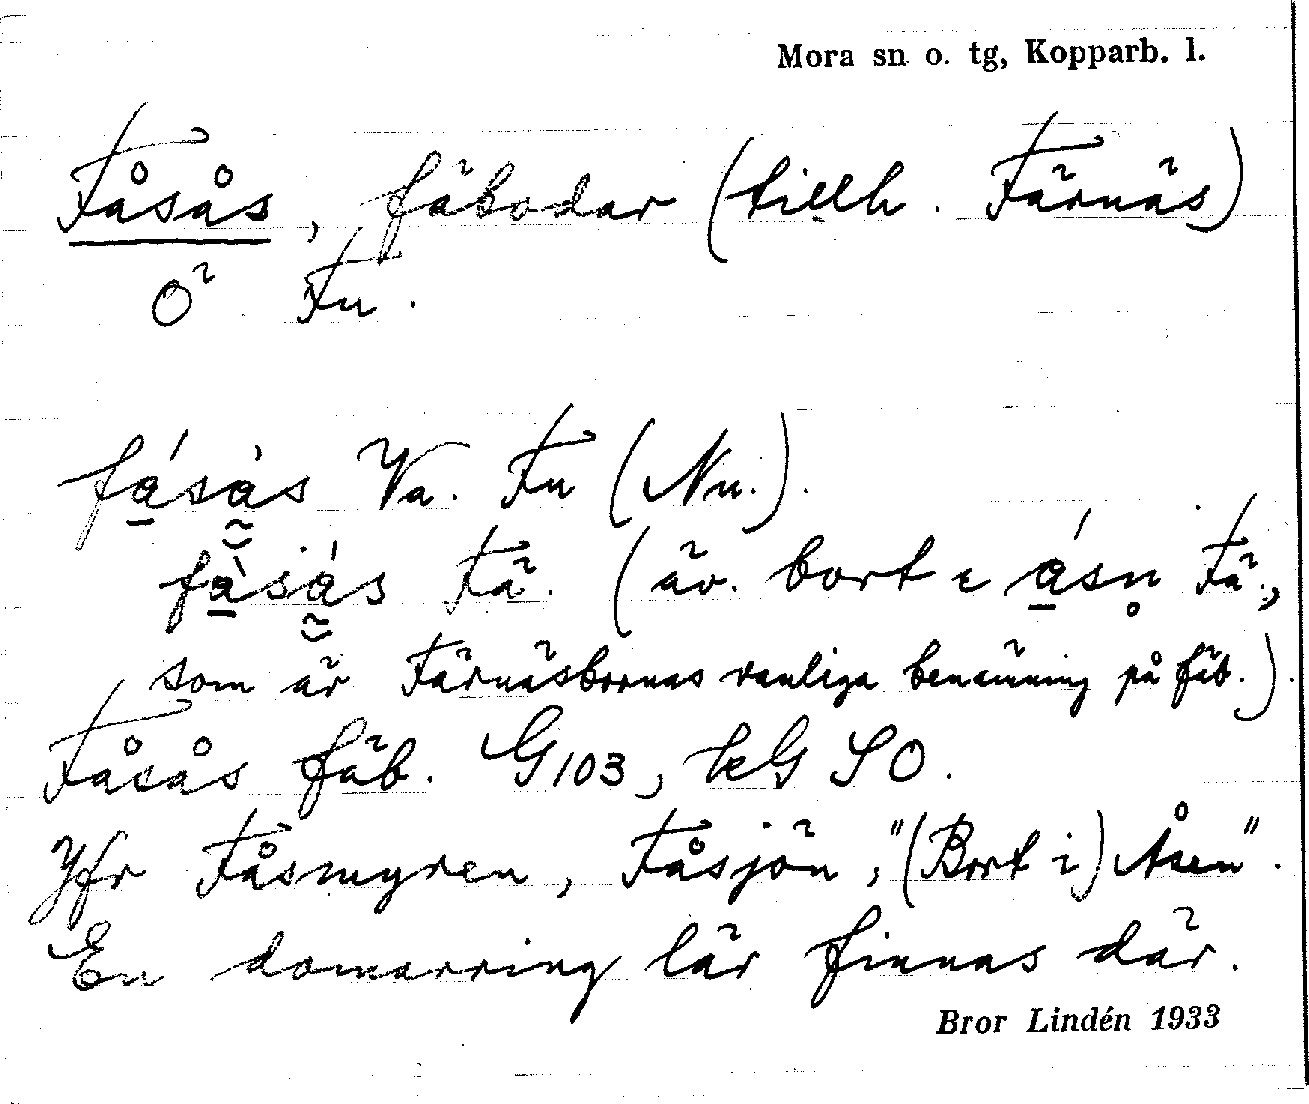 Mora sn o. tg, Kopparb. l.
Fåsås, fäbodar (tillh. Färnäs)
Fu.
fásàs Va. Fu (Nu.).
fàsás Fä. (äv. bort ɩ ásn̥ Fä.,
som är Färnäsbornas vanliga benämning på fäb.).
Fåsås fäb. G103, LeG SO.
Jfr Fåsmyren, Fåsjön, "(Bort i) Åsen".
En domarring lär finnas där.
Bror Lindén 1933